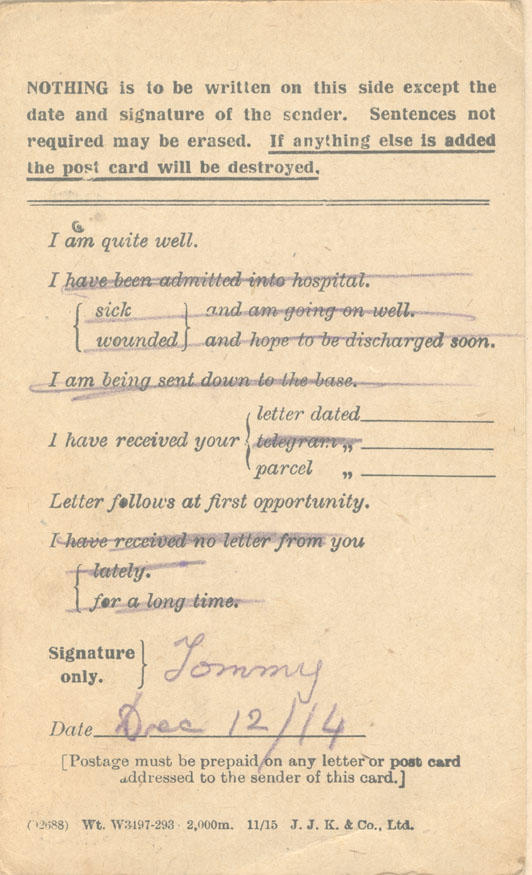 NOTHING is to be written on this side except the
date and signature of the sender. Sentences not
required may be erased. If anything else is added
the post card will be destroyed.
I am quite well.
I have been admitted into hospital.
sick and am going on well.
wounded and hope to be discharged soon.
I am being sent down to the base.
letter dated
I have received your telegram „
parcel „
Letter follows at first opportunity.
I have received no letter from you
lately.
for a long time.
Signature
only.
Tommy
Date Dec 12/14
[Postage must be prepaid on any letter or post card
addressed to the sender of this card.]
Wt. W3497-293 2,000m. 11/15 J. J. K. & Co., Ltd.